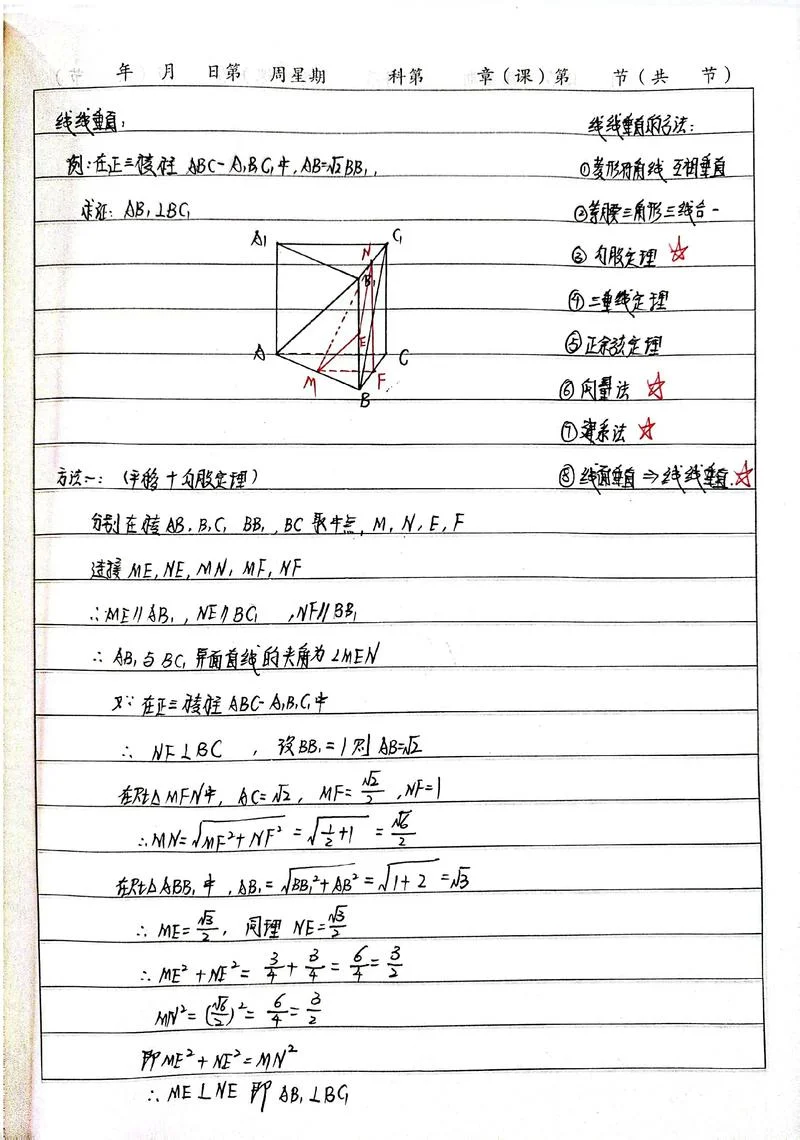 年 月 日第 周星期 科第 章(课)第 节(共 节)
线线垂直:
例:在正三棱柱 ABC-A₁B₁C₁中,AB=√2BB₁,
求证: AB₁⊥BC₁
线线垂直的方法:
①菱形对角线 互相垂直
②等腰三角形三线合一
③ 勾股定理 ☆
④三垂线定理
⑤正余弦定理
⑥向量法 ☆
⑦建系法 ☆
⑧线面垂直⇒线线垂直.☆
A₁ C₁
N
B₁
E
A C
M F
B
方法一: (平移+勾股定理)
分别在棱AB,B₁C₁ BB₁,BC 取中点, M, N, E, F
连接 ME, NE, MN, MF, NF
∴ME∥AB₁, NE∥BC₁ ,NF∥BB₁
∴ AB₁与BC₁异面直线的夹角为∠MEN
又∵在正三棱柱 ABC-A₁B₁C₁中
∴ NF⊥BC , 设BB₁=1则 AB=√2
在Rt△MFN中, AC=√2, MF=√2/2 ,NF=1
∴MN=√(MF²+NF²) =√(1/2+1) =√6/2
在Rt△ABB₁中,AB₁=√(BB₁²+AB²)=√(1+2)=√3
∴ ME=√3/2, 同理 NE=√3/2
∴ ME²+NE²= 3/4+3/4=6/4=3/2
MN²=(√6/2)²= 6/4=3/2
即ME²+NE²=MN²
∴ME⊥NE 即 AB₁⊥BC₁